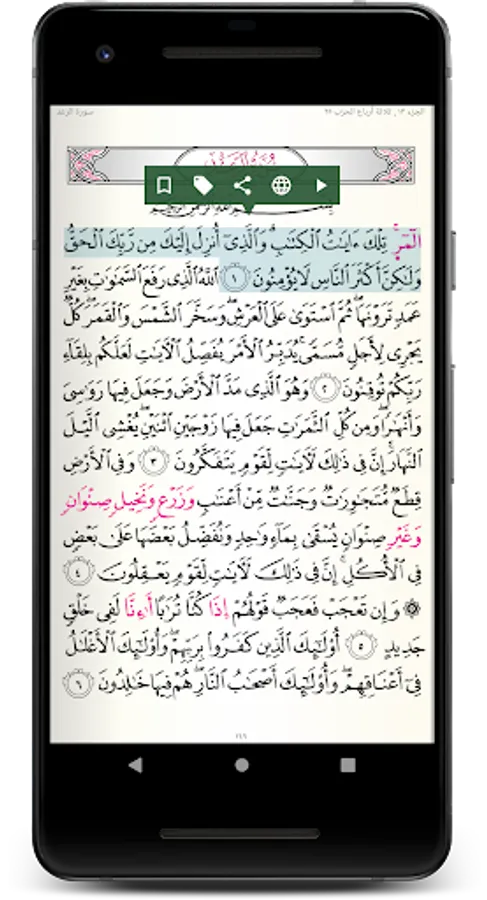 سورة الرعد
الجزء ١٣, ثلاثة أرباع الحزب ٢٥
الٓمٓرۚ تِلۡكَ ءَايَٰتُ ٱلۡكِتَٰبِۗ وَٱلَّذِيٓ أُنزِلَ إِلَيۡكَ مِن رَّبِّكَ ٱلۡحَقُّ
وَلَٰكِنَّ أَكۡثَرَ ٱلنَّاسِ لَا يُؤۡمِنُونَ ١ ٱللَّهُ ٱلَّذِي رَفَعَ ٱلسَّمَٰوَٰتِ بِغَيۡرِ
عَمَدٖ تَرَوۡنَهَاۖ ثُمَّ ٱسۡتَوَىٰ عَلَى ٱلۡعَرۡشِۖ وَسَخَّرَ ٱلشَّمۡسَ وَٱلۡقَمَرَۖ كُلّٞ
يَجۡرِي لِأَجَلٖ مُّسَمّٗىۚ يُدَبِّرُ ٱلۡأَمۡرَ يُفَصِّلُ ٱلۡأٓيَٰتِ لَعَلَّكُم بِلِقَآءِ
رَبِّكُمۡ تُوقِنُونَ ٢ وَهُوَ ٱلَّذِي مَدَّ ٱلۡأَرۡضَ وَجَعَلَ فِيهَا رَوَٰسِيَ
وَأَنۡهَٰرٗاۖ وَمِن كُلِّ ٱلثَّمَرَٰتِ جَعَلَ فِيهَا زَوۡجَيۡنِ ٱثۡنَيۡنِۖ يُغۡشِي ٱلَّيۡلَ
ٱلنَّهَارَۚ إِنَّ فِي ذَٰلِكَ لَأٓيَٰتٖ لِّقَوۡمٖ يَتَفَكَّرُونَ ٣ وَفِي ٱلۡأَرۡضِ
قِطَعٞ مُّتَجَٰوِرَٰتٞ وَجَنَّٰتٞ مِّنۡ أَعۡنَٰبٖ وَزَرۡعٖ وَنَخِيلٖ صِنۡوَانٖ
وَغَيۡرِ صِنۡوَانٖ يُسۡقَىٰ بِمَآءٖ وَٰحِدٖ وَنُفَضِّلُ بَعۡضَهَا عَلَىٰ بَعۡضٖ
فِي ٱلۡأُكُلِۚ إِنَّ فِي ذَٰلِكَ لَأٓيَٰتٖ لِّقَوۡمٖ يَعۡقِلُونَ ٤
۞ وَإِن تَعۡجَبۡ فَعَجَبٞ قَوۡلُهُمۡ إِذَا كُنَّا تُرَٰبًا أَءِنَّا لَفِي خَلۡقٖ
جَدِيدٍۗ ٥ أُوْلَٰٓئِكَ ٱلَّذِينَ كَفَرُواْ بِرَبِّهِمۡۖ وَأُوْلَٰٓئِكَ ٱلۡأَغۡلَٰلُ
فِيٓ أَعۡنَاقِهِمۡۖ وَأُوْلَٰٓئِكَ أَصۡحَٰبُ ٱلنَّارِۖ هُمۡ فِيهَا خَٰلِدُونَ ٦